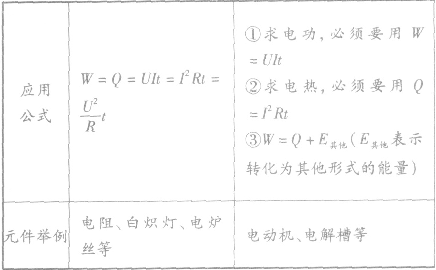 应用
公式
W = Q = UIt = I²Rt =
U²/R t
①求电功,必须要用 W
= UIt
②求电热,必须要用 Q
= I²Rt
③W = Q + E其他(E其他表示
转化为其他形式的能量)
元件举例
电阻、白炽灯、电炉
丝等
电动机、电解槽等